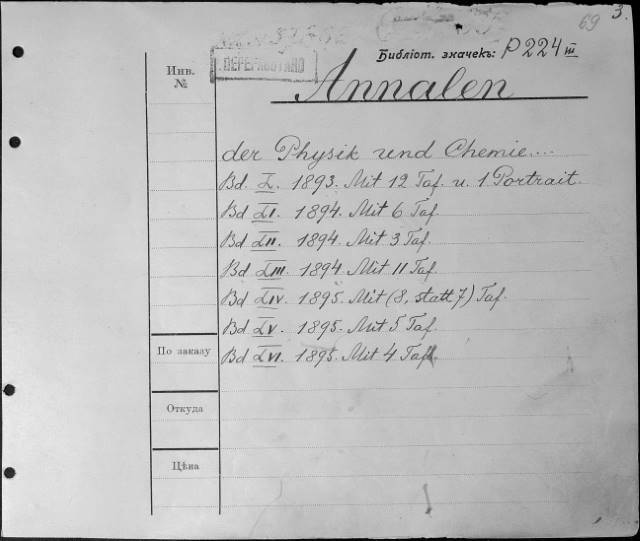 3.
69
Инв.
№
ПЕРЕРАБОТАНО
Библіот. значекъ: P 224 III
Annalen
der Physik und Chemie....
Bd. L. 1893. Mit 12 Taf. u. 1 Portrait.
Bd LI. 1894. Mit 6 Taf.
Bd LII. 1894. Mit 3 Taf.
Bd LIII. 1894. Mit 11 Taf.
Bd LIV. 1895. Mit (8, statt 7) Taf.
Bd LV. 1895. Mit 5 Taf.
Bd LVI. 1895. Mit 4 Taf.
По заказу
Откуда
Цѣна